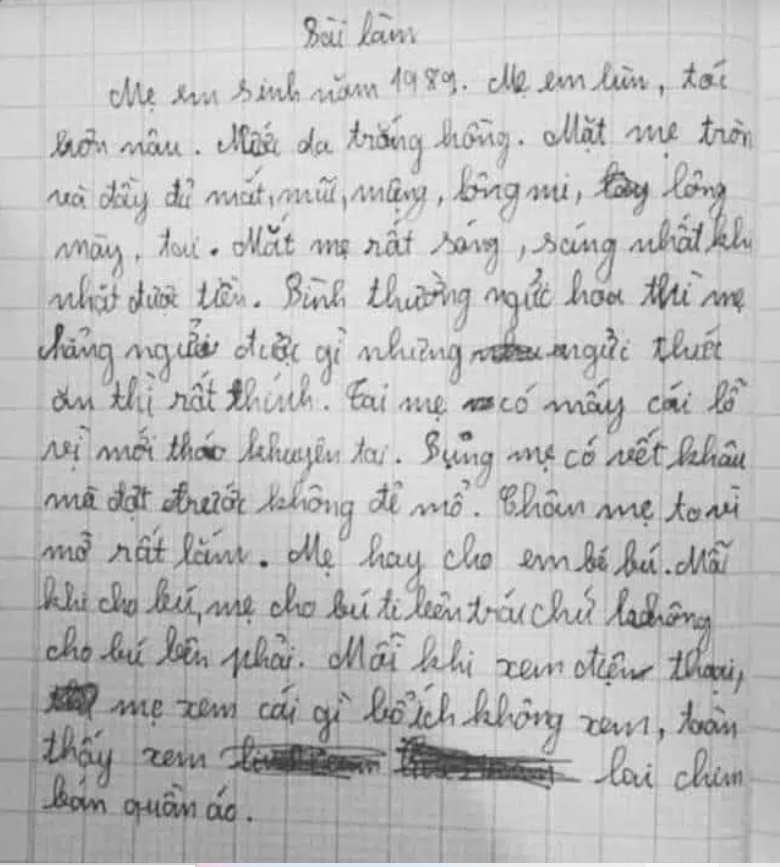 Bài làm
Mẹ em sinh năm 1989. Mẹ em lùn, tóc
hơn nâu. Nước da trắng hồng. Mặt mẹ tròn
và đầy đủ mắt, mũi, miệng, lông mi, lông
mày, tai. Mắt mẹ rất sáng, sáng nhất khi
nhặt được tiền. Bình thường ngửi hoa thì mẹ
chẳng ngửi được gì nhưng ngửi thức
ăn thì rất thính. Tai mẹ có mấy cái lỗ
vì mới tháo khuyên tai. Bụng mẹ có vết khâu
mà đặt trước không đẻ mổ. Chân mẹ to vì
mở rất lắm. Mẹ hay cho em bé bú. Mỗi
khi cho bú, mẹ cho bú ti bên trái chứ không
cho bú bên phải. Mỗi khi xem điện thoại,
mẹ xem cái gì bổ ích không xem, toàn
thấy xem lai chim
bán quần áo.